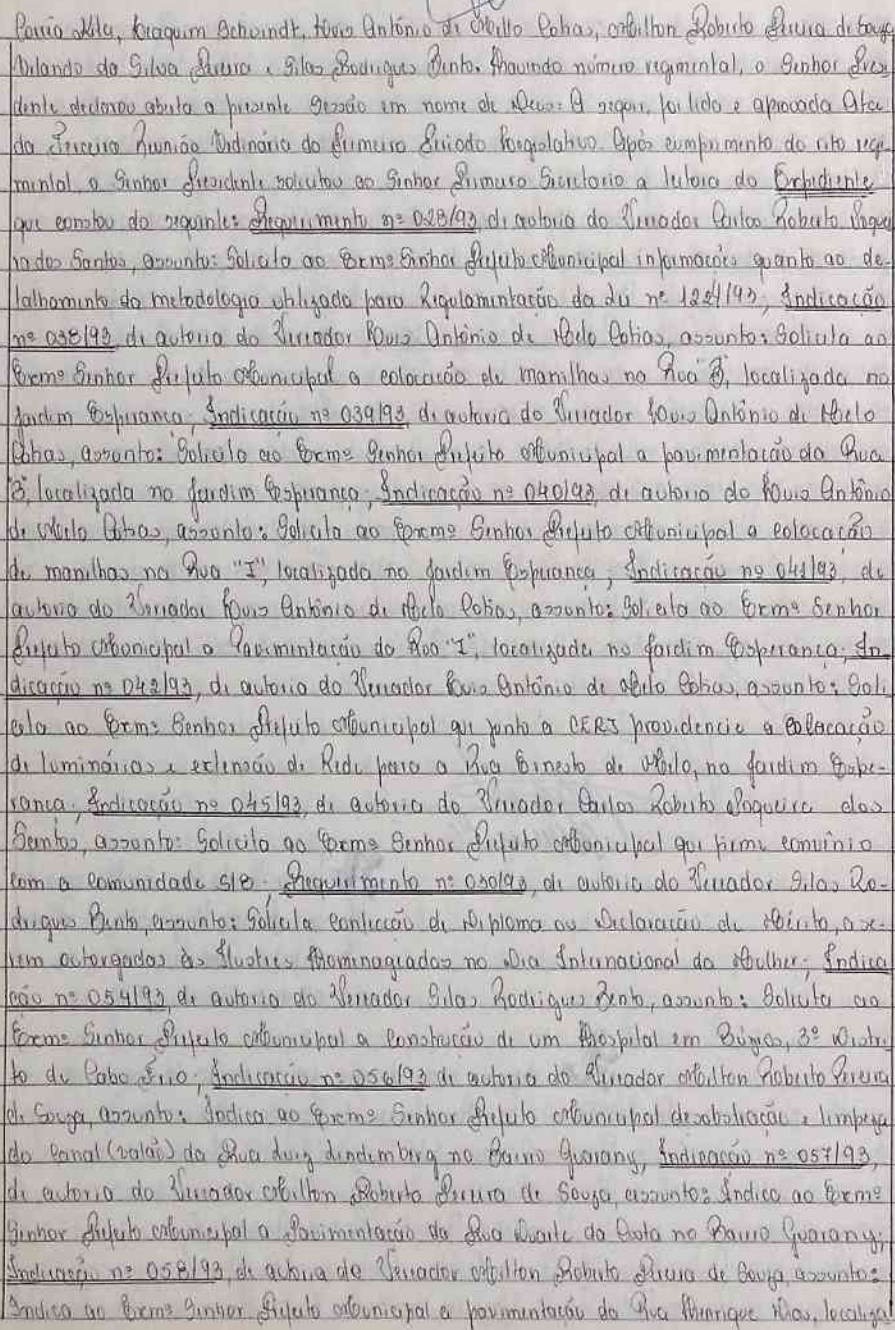 Joaquim Schwindt, Luis Antônio de Mello Cotias, Milton Roberto Pereira de Souza
Orlando da Silva Pereira e Silas Rodrigues Bento. Havendo número regimental, o Senhor Presi
dente declarou aberta a presente Sessão em nome de Deus. A seguir, foi lida e aprovada Ata
da Terceira Reunião Ordinária do Primeiro Período Legislativo. Após cumprimento do rito regi
mental o Senhor Presidente solicitou ao Senhor Primeiro Secretario a leitura do Expediente
que constou do seguinte: Requerimento nº 028/93, de autoria do Vereador Carlos Roberto Noguei
ra dos Santos, assunto: Solicita ao Exmº Senhor Prefeito Municipal informações quanto ao de-
talhamento da metodologia utilizada para Regulamentação da Lei nº 1224/93; Indicação
nº 038/93 de autoria do Vereador Luis Antônio de Melo Cotias, assunto: Solicita ao
Exmº Senhor Prefeito Municipal a colocação de manilhas na Rua "B", localizada no
Jardim Esperança; Indicação nº 039/93, de autoria do Vereador Luis Antônio de Melo
Cotias, assunto: Solicita ao Exmº Senhor Prefeito Municipal a pavimentação da Rua
"B", localizada no Jardim Esperança; Indicação nº 040/93, de autoria do Luis Antônio
de Melo Cotias, assunto: Solicita ao Exmº Senhor Prefeito Municipal a colocação
de manilhas na Rua "I", localizada no Jardim Esperança; Indicação nº 041/93, de
autoria do Vereador Luis Antônio de Melo Cotias, assunto: Solicita ao Exmº Senhor
Prefeito Municipal a Pavimentação da Rua "I", localizada no Jardim Esperança; In
dicação nº 042/93, de autoria do Vereador Luis Antônio de Melo Cotias, assunto: Soli
cita ao Exmº Senhor Prefeito Municipal que junto a CERJ providencie a colocação
de luminárias e extensão de Rede para a Rua Ernesto de Melo, no Jardim Espe-
rança; Indicação nº 045/93, de autoria do Vereador Carlos Roberto Nogueira dos
Santos, assunto: Solicita ao Exmº Senhor Prefeito Municipal que firme convênio
com a comunidade S/8. Requerimento nº 030/93, de autoria do Vereador Silas Ro-
drigues Bento, assunto: Solicita confecção de Diploma ou Declaração de Mérito, a se-
rem outorgadas às Ilustres Homenageadas no Dia Internacional da Mulher; Indica
ção nº 054/93 de autoria do Vereador Silas Rodrigues Bento, assunto: Solicita ao
Exmº Senhor Prefeito Municipal a Construção de um Hospital em Búzios, 3º Distri
to de Cabo Frio; Indicação nº 056/93 de autoria do Vereador Milton Roberto Pereira
de Souza, assunto: Indica ao Exmº Senhor Prefeito Municipal desobstrução e limpeza
do Canal (valão) da Rua Luiz Lindemberg no Bairro Guarany, Indicação nº 057/93,
de autoria do Vereador Milton Roberto Pereira de Souza, assunto: Indica ao Exmº
Senhor Prefeito Municipal a Pavimentação da Rua Duarte da Costa no Bairro Guarany;
Indicação nº 058/93, de autoria do Vereador Milton Roberto Pereira de Souza, assunto:
Indica ao Exmº Senhor Prefeito Municipal a pavimentação da Rua Henrique Dias, localiza